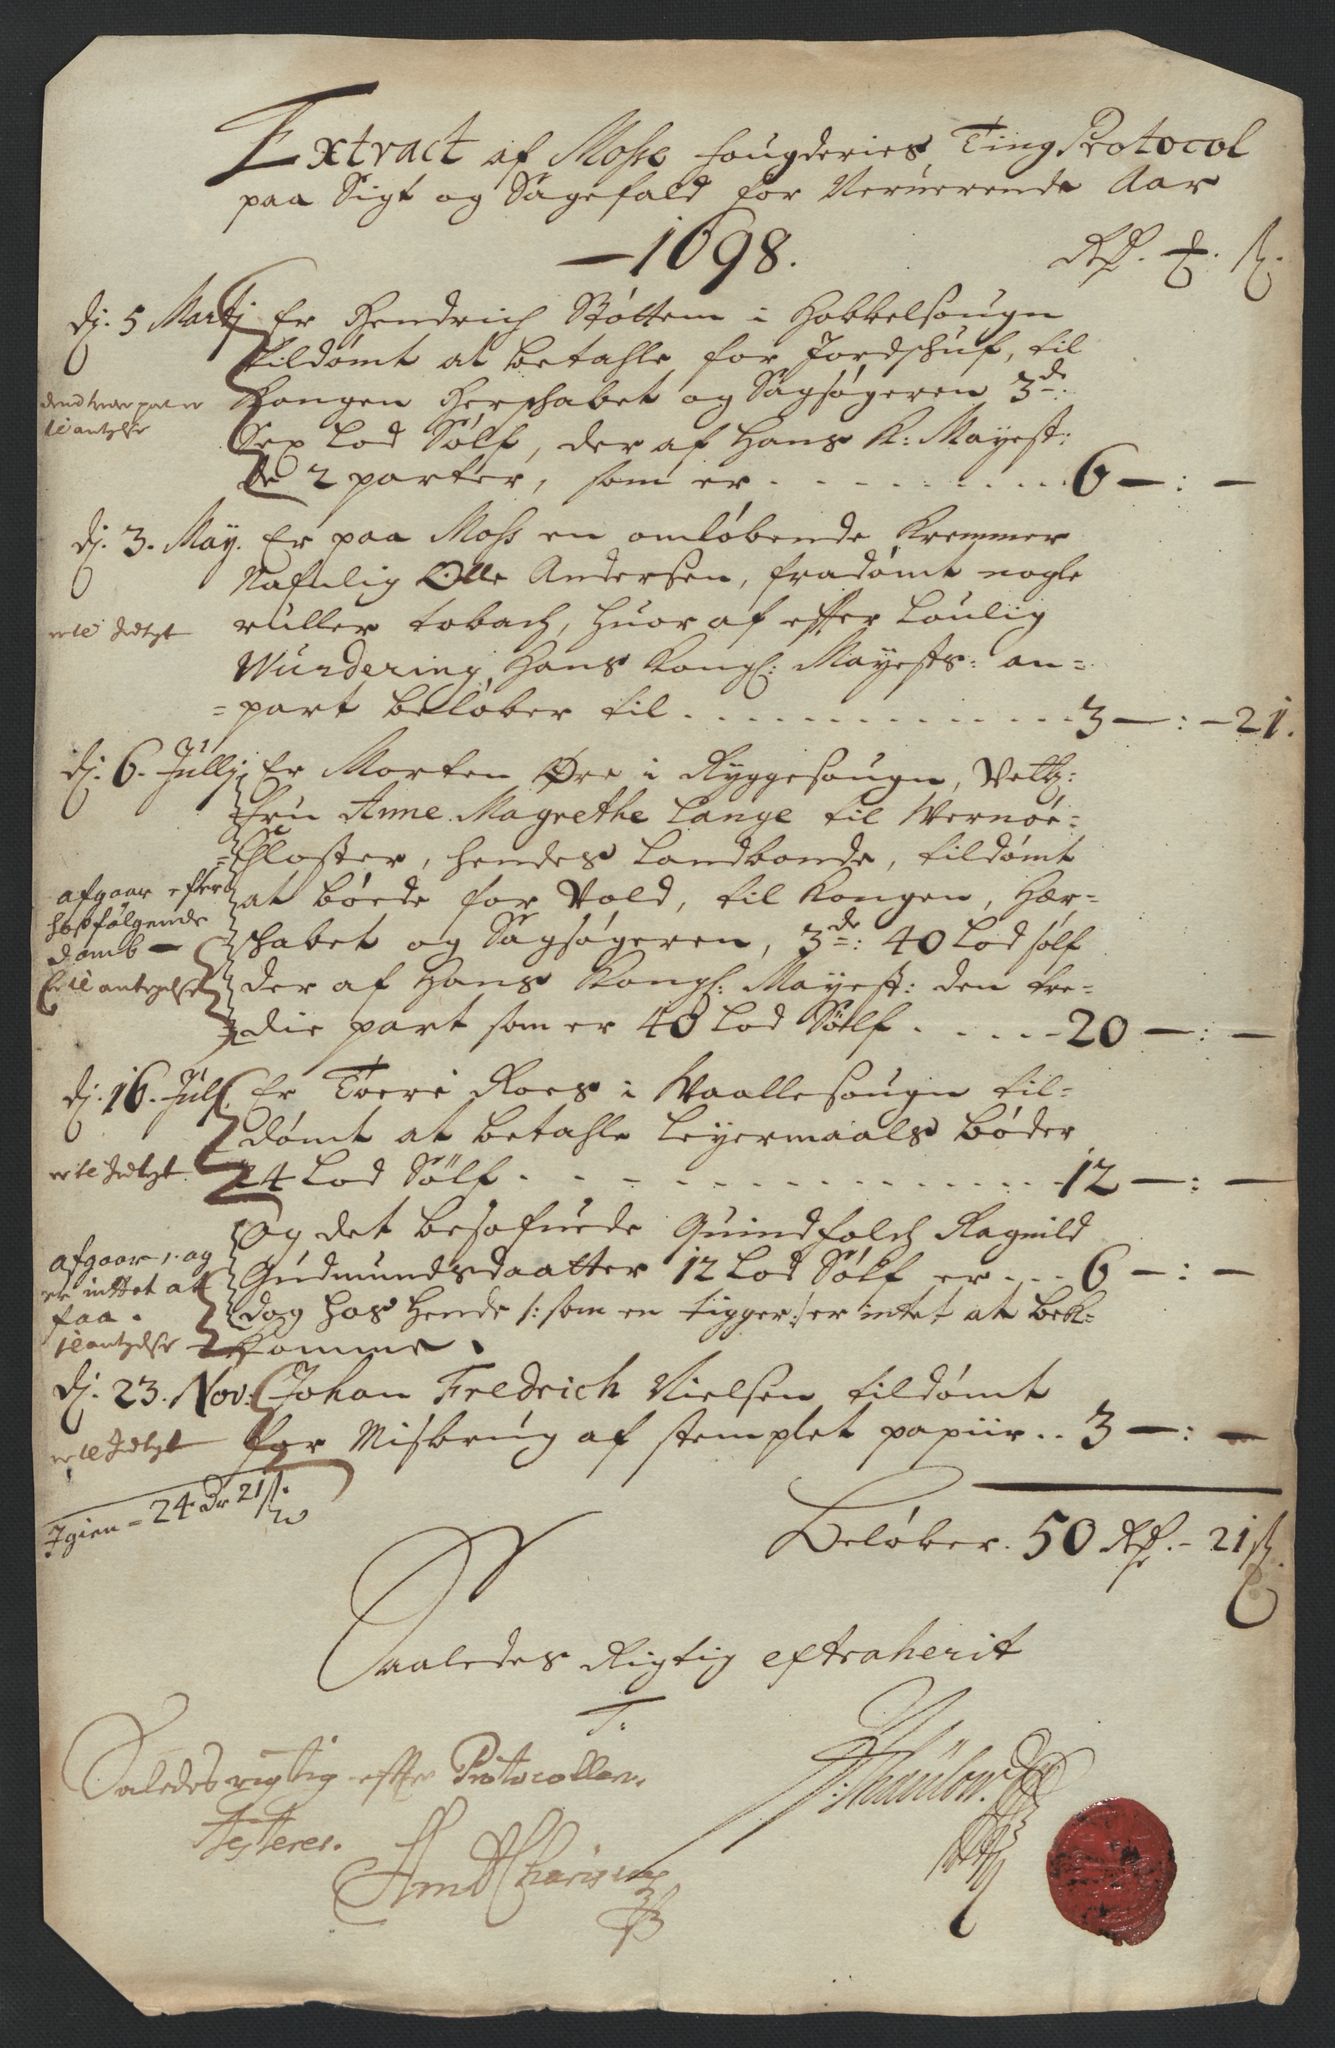 Extract af Mosse fougderies Ting Protocol
paa Sigt og Sagefald for Nerverende Aar
1698.
Rdr. ß.
dj. 5 Martj Er Hendrich Støttem i Hobbelsougn
tildømt at betahle for Jordschuf, til
Kongen Herschabet og Sagsøgeren 3de:
Sex Lod Sølf, der af Hans K: Mayest:
de 2 parter, som er 6 — : —
antegelse
dj. 3. May. Er paa Moss en omløbende Kremmer
Nafnlig Olle Andersen, fradømt nogle
ruller tobach, huor af effter Loulig
Wurdering, Hans Kongl: Mayests: an=
=part beløber til 3 — : — 21.
dj. 6. Jullj Er Morten Øre i Ryggesougn, Velb:
Fru Anne Magrethe Lange til Wernøe=
=Closter, hendes Landbonde, tildømt
at bøede for Vold, til Kongen, Her=
schabet og Sagsøgeren, 3de: 40 Lod sølf
der af Hans Kongl: Mayest: den tre=
die part som er 40 Lod Sølf 20 — : —
afgaar efter
hosfølgende
domb —
antegelse
dj. 16. Jul. Er Toere Roes i Waallesougn til=
dømt at betahle Leyermaals bøder
24 Lod Sølf 12 — : —
Og det besofuede Quindfolch Ragnild
Gudmundsdaatter 12 Lod Sølf er 6 — : —
dog hos hende /: som en tigger :/ er intet at bek=
komme.
afgaar, og
er inttet at
faa.
antegelse
dj. 23. Nov. Johan Fredrich Nielsen tildømt
for Misbrug af stemplet papiir .. 3 — : —
Igien = 24 dr 21 ß.
Beløber. 50 Rdr. - 21 ß.
Saaledes Rigtig extraherit
T.
Saaledes rigtig effter Protocollen
testerer.